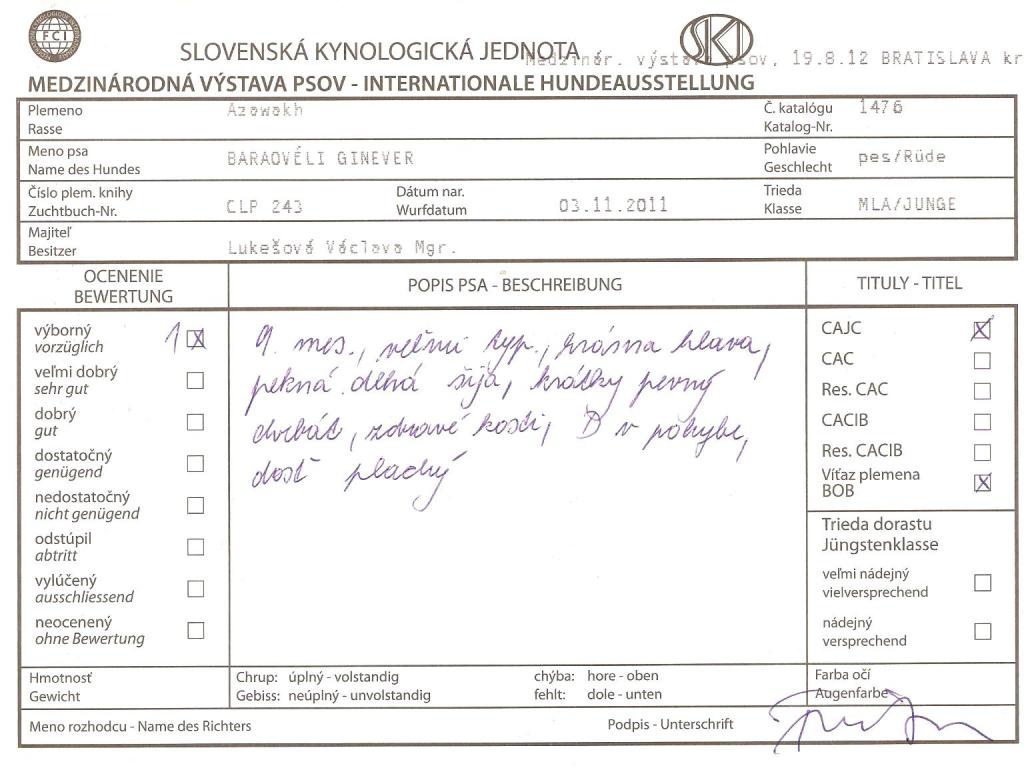 FCI
SKJ
SLOVENSKÁ KYNOLOGICKÁ JEDNOTA
Medzinár. výstava psov, 19.8.12 BRATISLAVA kr
MEDZINÁRODNÁ VÝSTAVA PSOV - INTERNATIONALE HUNDEAUSSTELLUNG
Plemeno Azawakh Č. katalógu 1476
Rasse Katalog-Nr.
Meno psa BARAOVÉLI GINEVER Pohlavie pes/Rüde
Name des Hundes Geschlecht
Číslo plem. knihy CLP 243 Dátum nar. 03.11.2011 Trieda MLA/JUNGE
Zuchtbuch-Nr. Wurfdatum Klasse
Majiteľ Lukešová Václava Mgr.
Besitzer
OCENENIE
BEWERTUNG
POPIS PSA - BESCHREIBUNG
TITULY - TITEL
výborný 1 X
vorzüglich
veľmi dobrý
sehr gut
dobrý
gut
dostatočný
genügend
nedostatočný
nicht genügend
odstúpil
abtritt
vylúčený
ausschliessend
neocenený
ohne Bewertung
9. mes., veľmi typ., krásna hlava,
pekná dlhá šija, krátky pevný
chrbát, zdravé kosti, D v pohybe,
dosť plachý
CAJC X
CAC
Res. CAC
CACIB
Res. CACIB
Víťaz plemena
BOB X
Trieda dorastu
Jüngstenklasse
veľmi nádejný
vielversprechend
nádejný
versprechend
Hmotnosť Chrup: úplný - volstandig chýba: hore - oben Farba očí
Gewicht Gebiss: neúplný - unvolstandig fehlt: dole - unten Augenfarbe
Meno rozhodcu - Name des Richters Podpis - Unterschrift